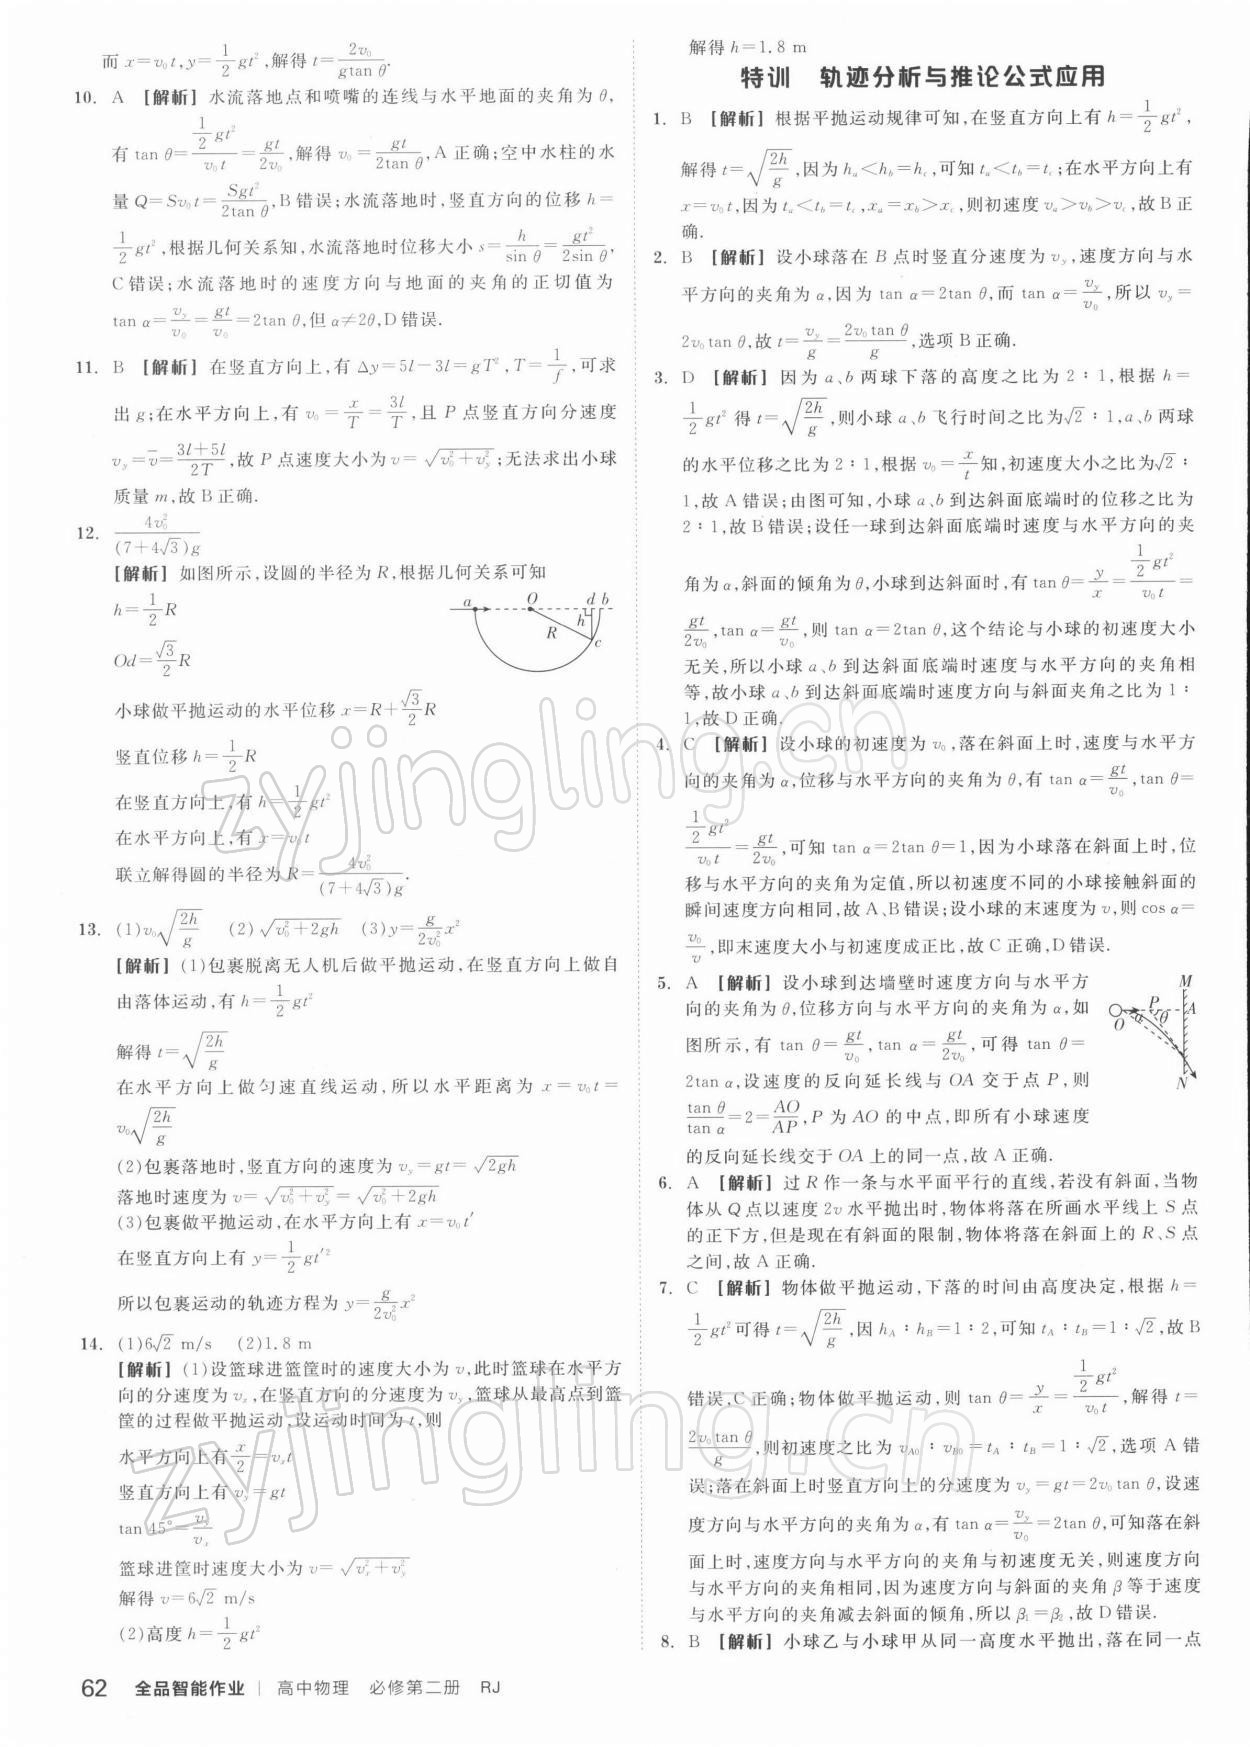 而 x=v₀t,y=\frac{1}{2}gt²,解得 t=\frac{2v₀}{g\tan θ}.
10. A 【解析】水流落地点和喷嘴的连线与水平地面的夹角为 θ,
有 tan θ=\frac{\frac{1}{2}gt²}{v₀t}=\frac{gt}{2v₀},解得 v₀=\frac{gt}{2\tan θ},A 正确;空中水柱的水
量 Q=Sv₀t=\frac{Sgt²}{2\tan θ},B 错误;水流落地时,竖直方向的位移 h=
\frac{1}{2}gt²,根据几何关系知,水流落地时位移大小 s=\frac{h}{\sin θ}=\frac{gt²}{2\sin θ},
C 错误;水流落地时的速度方向与地面的夹角的正切值为
tan α=\frac{v_y}{v₀}=\frac{gt}{v₀}=2tan θ,但 α≠2θ,D 错误.
11. B 【解析】在竖直方向上,有 Δy=5l-3l=gT²,T=\frac{1}{f},可求
出 g;在水平方向上,有 v₀=\frac{x}{T}=\frac{3l}{T},且 P 点竖直方向分速度
v_y=\overline{v}=\frac{3l+5l}{2T},故 P 点速度大小为 v=\sqrt{v₀²+v_y²};无法求出小球
质量 m,故 B 正确.
12. \frac{4v₀²}{(7+4\sqrt{3})g}
【解析】如图所示,设圆的半径为 R,根据几何关系可知
h=\frac{1}{2}R
Od=\frac{\sqrt{3}}{2}R
a O d b
h
R
c
小球做平抛运动的水平位移 x=R+\frac{\sqrt{3}}{2}R
竖直位移 h=\frac{1}{2}R
在竖直方向上,有 h=\frac{1}{2}gt²
在水平方向上,有 x=v₀t
联立解得圆的半径为 R=\frac{4v₀²}{(7+4\sqrt{3})g}.
13. (1)v₀\sqrt{\frac{2h}{g}} (2)\sqrt{v₀²+2gh} (3)y=\frac{g}{2v₀²}x²
【解析】(1)包裹脱离无人机后做平抛运动,在竖直方向上做自
由落体运动,有 h=\frac{1}{2}gt²
解得 t=\sqrt{\frac{2h}{g}}
在水平方向上做匀速直线运动,所以水平距离为 x=v₀t=
v₀\sqrt{\frac{2h}{g}}
(2)包裹落地时,竖直方向的速度为 v_y=gt=\sqrt{2gh}
落地时速度为 v=\sqrt{v₀²+v_y²}=\sqrt{v₀²+2gh}
(3)包裹做平抛运动,在水平方向上有 x=v₀t′
在竖直方向上有 y=\frac{1}{2}gt′²
所以包裹运动的轨迹方程为 y=\frac{g}{2v₀²}x²
14. (1)6\sqrt{2} m/s (2)1.8 m
【解析】(1)设篮球进篮筐时的速度大小为 v,此时篮球在水平方
向的分速度为 v_x,在竖直方向的分速度为 v_y,篮球从最高点到篮
筐的过程做平抛运动,设运动时间为 t,则
水平方向上有\frac{x}{2}=v_xt
竖直方向上有 v_y=gt
tan 45°=\frac{v_y}{v_x}
篮球进筐时速度大小为 v=\sqrt{v_x²+v_y²}
解得 v=6\sqrt{2} m/s
(2)高度 h=\frac{1}{2}gt²
解得 h=1.8 m
特训 轨迹分析与推论公式应用
1. B 【解析】根据平抛运动规律可知,在竖直方向上有 h=\frac{1}{2}gt²,
解得 t=\sqrt{\frac{2h}{g}},因为 h_a<h_b=h_c,可知 t_a<t_b=t_c;在水平方向上有
x=v₀t,因为 t_a<t_b=t_c,x_a=x_b>x_c,则初速度 v_a>v_b>v_c,故 B 正
确.
2. B 【解析】设小球落在 B 点时竖直分速度为 v_y,速度方向与水
平方向的夹角为 α,因为 tan α=2tan θ,而 tan α=\frac{v_y}{v₀},所以 v_y=
2v₀tan θ,故 t=\frac{v_y}{g}=\frac{2v₀\tan θ}{g},选项 B 正确.
3. D 【解析】因为 a、b 两球下落的高度之比为 2∶1,根据 h=
\frac{1}{2}gt² 得 t=\sqrt{\frac{2h}{g}},则小球 a、b 飞行时间之比为\sqrt{2}∶1,a、b 两球
的水平位移之比为 2∶1,根据 v₀=\frac{x}{t}知,初速度大小之比为\sqrt{2}∶
1,故 A 错误;由图可知,小球 a、b 到达斜面底端时的位移之比为
2∶1,故 B 错误;设任一球到达斜面底端时速度与水平方向的夹
角为 α,斜面的倾角为 θ,小球到达斜面时,有 tan θ=\frac{y}{x}=\frac{\frac{1}{2}gt²}{v₀t}=
\frac{gt}{2v₀},tan α=\frac{gt}{v₀},则 tan α=2tan θ,这个结论与小球的初速度大小
无关,所以小球 a、b 到达斜面底端时速度与水平方向的夹角相
等,故小球 a、b 到达斜面底端时速度方向与斜面夹角之比为 1∶
1,故 D 正确.
4. C 【解析】设小球的初速度为 v₀,落在斜面上时,速度与水平方
向的夹角为 α,位移与水平方向的夹角为 θ,有 tan α=\frac{gt}{v₀},tan θ=
\frac{\frac{1}{2}gt²}{v₀t}=\frac{gt}{2v₀},可知 tan α=2tan θ=1,因为小球落在斜面上时,位
移与水平方向的夹角为定值,所以初速度不同的小球接触斜面的
瞬间速度方向相同,故 A、B 错误;设小球的末速度为 v,则 cos α=
\frac{v₀}{v},即末速度大小与初速度成正比,故 C 正确,D 错误.
5. A 【解析】设小球到达墙壁时速度方向与水平方
向的夹角为 θ,位移方向与水平方向的夹角为 α,如
图所示,有 tan θ=\frac{gt}{v₀},tan α=\frac{gt}{2v₀},可得 tan θ=
2tan α,设速度的反向延长线与 OA 交于点 P,则
\frac{\tan θ}{\tan α}=2=\frac{AO}{AP},P 为 AO 的中点,即所有小球速度
的反向延长线交于 OA 上的同一点,故 A 正确.
M
P A
O α θ
N
6. A 【解析】过 R 作一条与水平面平行的直线,若没有斜面,当物
体从 Q 点以速度 2v 水平抛出时,物体将落在所画水平线上 S 点
的正下方,但是现在有斜面的限制,物体将落在斜面上的 R、S 点
之间,故 A 正确.
7. C 【解析】物体做平抛运动,下落的时间由高度决定,根据 h=
\frac{1}{2}gt² 可得 t=\sqrt{\frac{2h}{g}},因 h_A∶h_B=1∶2,可知 t_A∶t_B=1∶\sqrt{2},故 B
错误,C 正确;物体做平抛运动,则 tan θ=\frac{y}{x}=\frac{\frac{1}{2}gt²}{v₀t},解得 t=
\frac{2v₀\tan θ}{g},则初速度之比为 v_{A0}∶v_{B0}=t_A∶t_B=1∶\sqrt{2},选项 A 错
误;落在斜面上时竖直方向上的分速度为 v_y=gt=2v₀tan θ,设速
度方向与水平方向的夹角为 α,有 tan α=\frac{v_y}{v₀}=2tan θ,可知落在斜
面上时,速度方向与水平方向的夹角与初速度无关,则速度方向
与水平方向的夹角相同,因为速度方向与斜面的夹角 β 等于速度
与水平方向的夹角减去斜面的倾角,所以 β₁=β₂,故 D 错误.
8. B 【解析】小球乙与小球甲从同一高度水平抛出,落在同一点
62 全品智能作业 | 高中物理 必修第二册 RJ
zyjingling.cn
zyjingling.cn